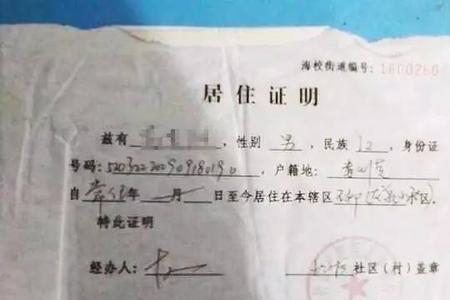 海校街道编号:1600260
居住证明
兹有,性别男,民族汉,身份证
号码:520322200909180190,户籍地:贵州省
自常住年一月一日至今居住在本辖区小区.
特此证明
经办人:
社区(村)盖章